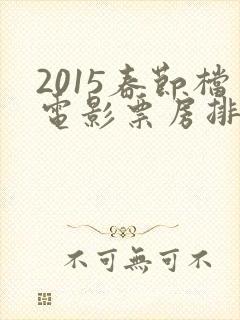 2015春節檔
電影票房排
不可無可不